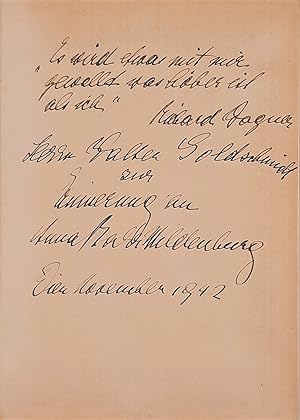 „Es wird etwas mit mir
gewollt was höher ist
als ich"
Richard Wagner
Herrn Walter Goldschmidt
zur
Erinnerung an
Anna Bahr-Mildenburg
Wien November 1942